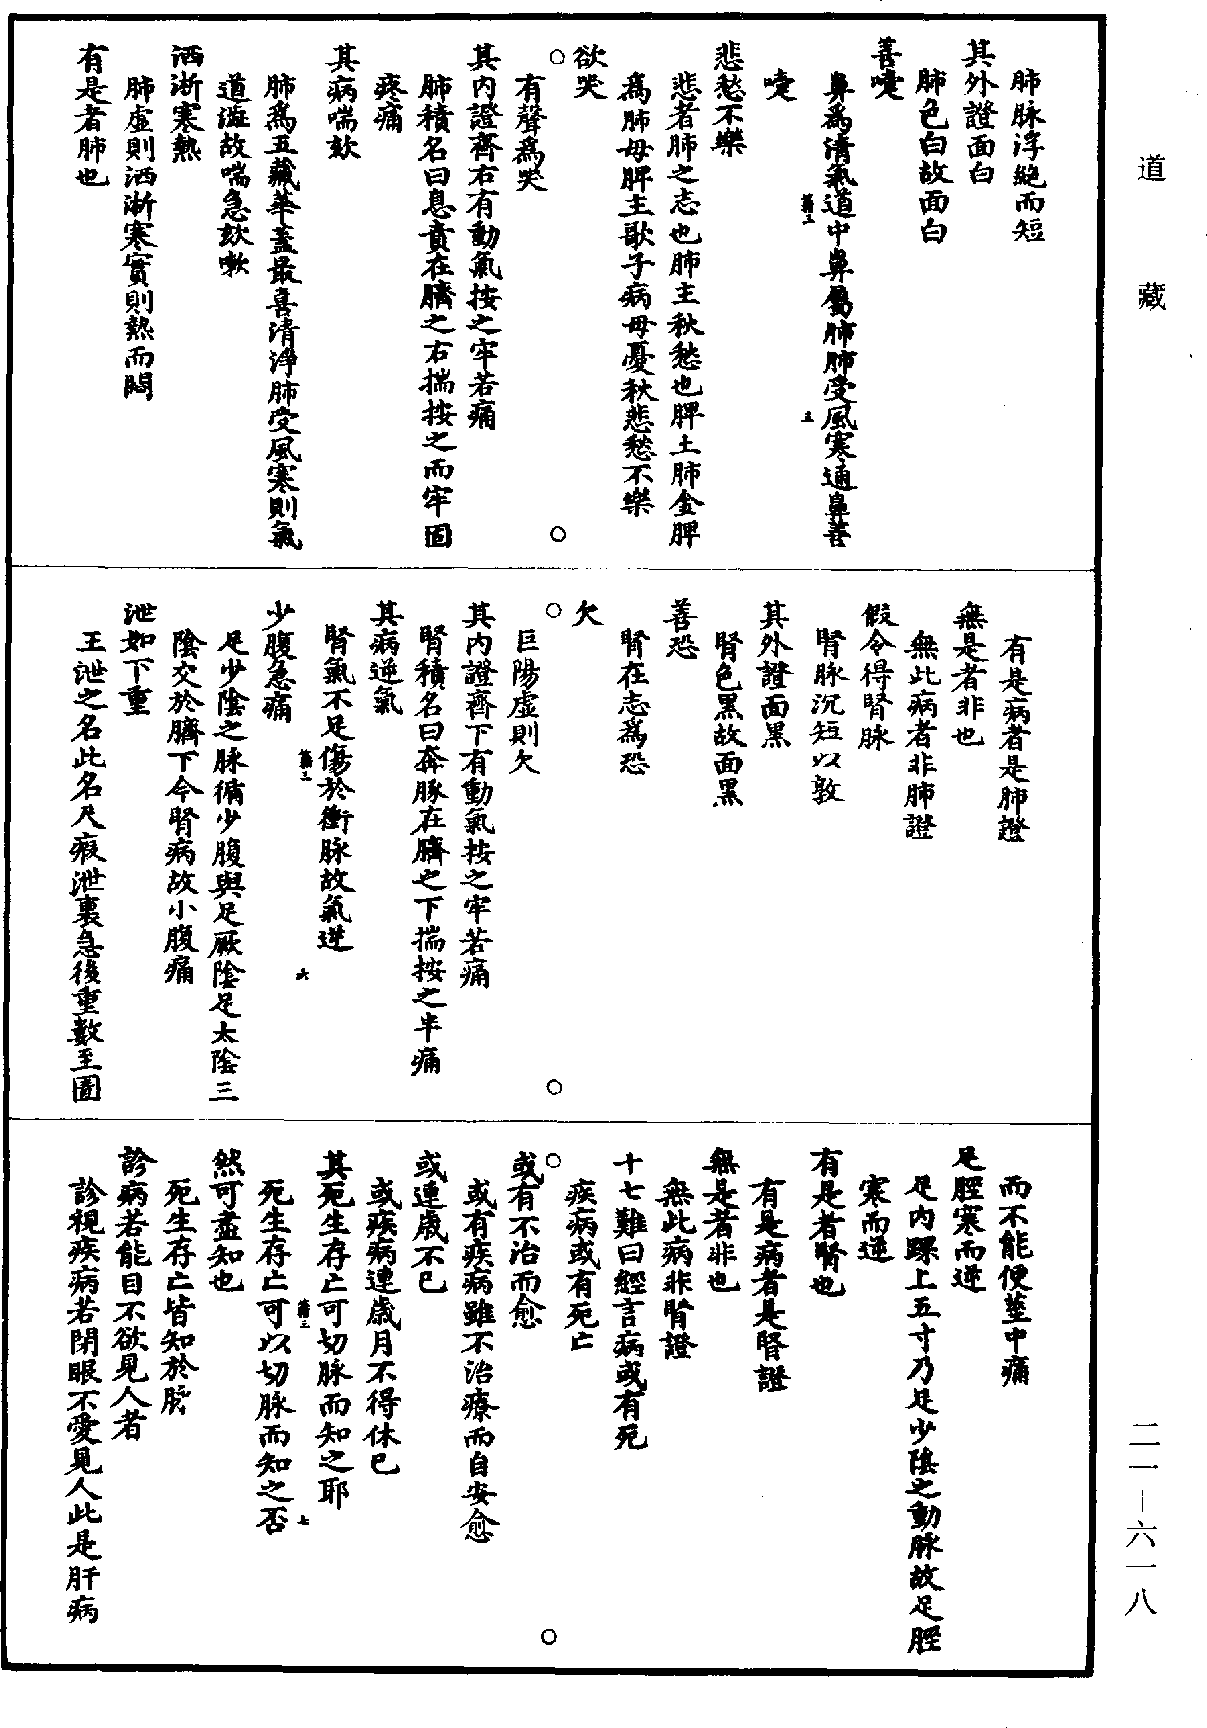 道藏
二一—六一八
肺脉浮絶而短
其外證面白
肺色白故面白
善嚏
鼻爲清氣道中鼻屬肺肺受風寒通鼻善
嚏
悲愁不樂
悲者肺之志也肺主秋愁也脾土肺金脾
爲肺母脾主歌子病母憂秋悲愁不樂
欲哭
有聲爲哭
其内證齊右有動氣按之牢若痛
肺積名曰息賁在臍之右揣按之而牢固
疼痛
其病喘欬
肺爲五藏華蓋最喜清淨肺受風寒則氣
道澁故喘急欬嗽
洒淅寒熱
肺虛則洒淅寒實則熱而悶
有是者肺也
有是病者是肺證
無是者非也
無此病者非肺證
假令得腎脉
腎脉沉短以敦
其外證面黑
腎色黑故面黑
善恐
腎在志爲恐
欠
巨陽虛則欠
其内證齊下有動氣按之牢若痛
腎積名曰奔豚在臍之下揣按之半痛
其病逆氣
腎氣不足傷於衝脉故氣逆
少腹急痛
足少陰之脉循少腹與足厥陰足太陰三
陰交於臍下今腎病故小腹痛
泄如下重
王泄之名此名大瘕泄裏急後重數至圊
而不能便莖中痛
足脛寒而逆
足内踝上五寸乃足少陰之動脉故足脛
寒而逆
有是者腎也
有是病者是腎證
無是者非也
無此病非腎證
十七難曰經言病或有死
疾病或有死亡
或有不治而愈
或有疾病雖不治療而自安愈
或連歲不已
或疾病連歲月不得休已
其死生存亡可切脉而知之耶
死生存亡可以切脉而知之否
然可盡知也
死生存亡皆知於脉
診病若能目不欲見人者
診視疾病若閉眼不愛見人此是肝病